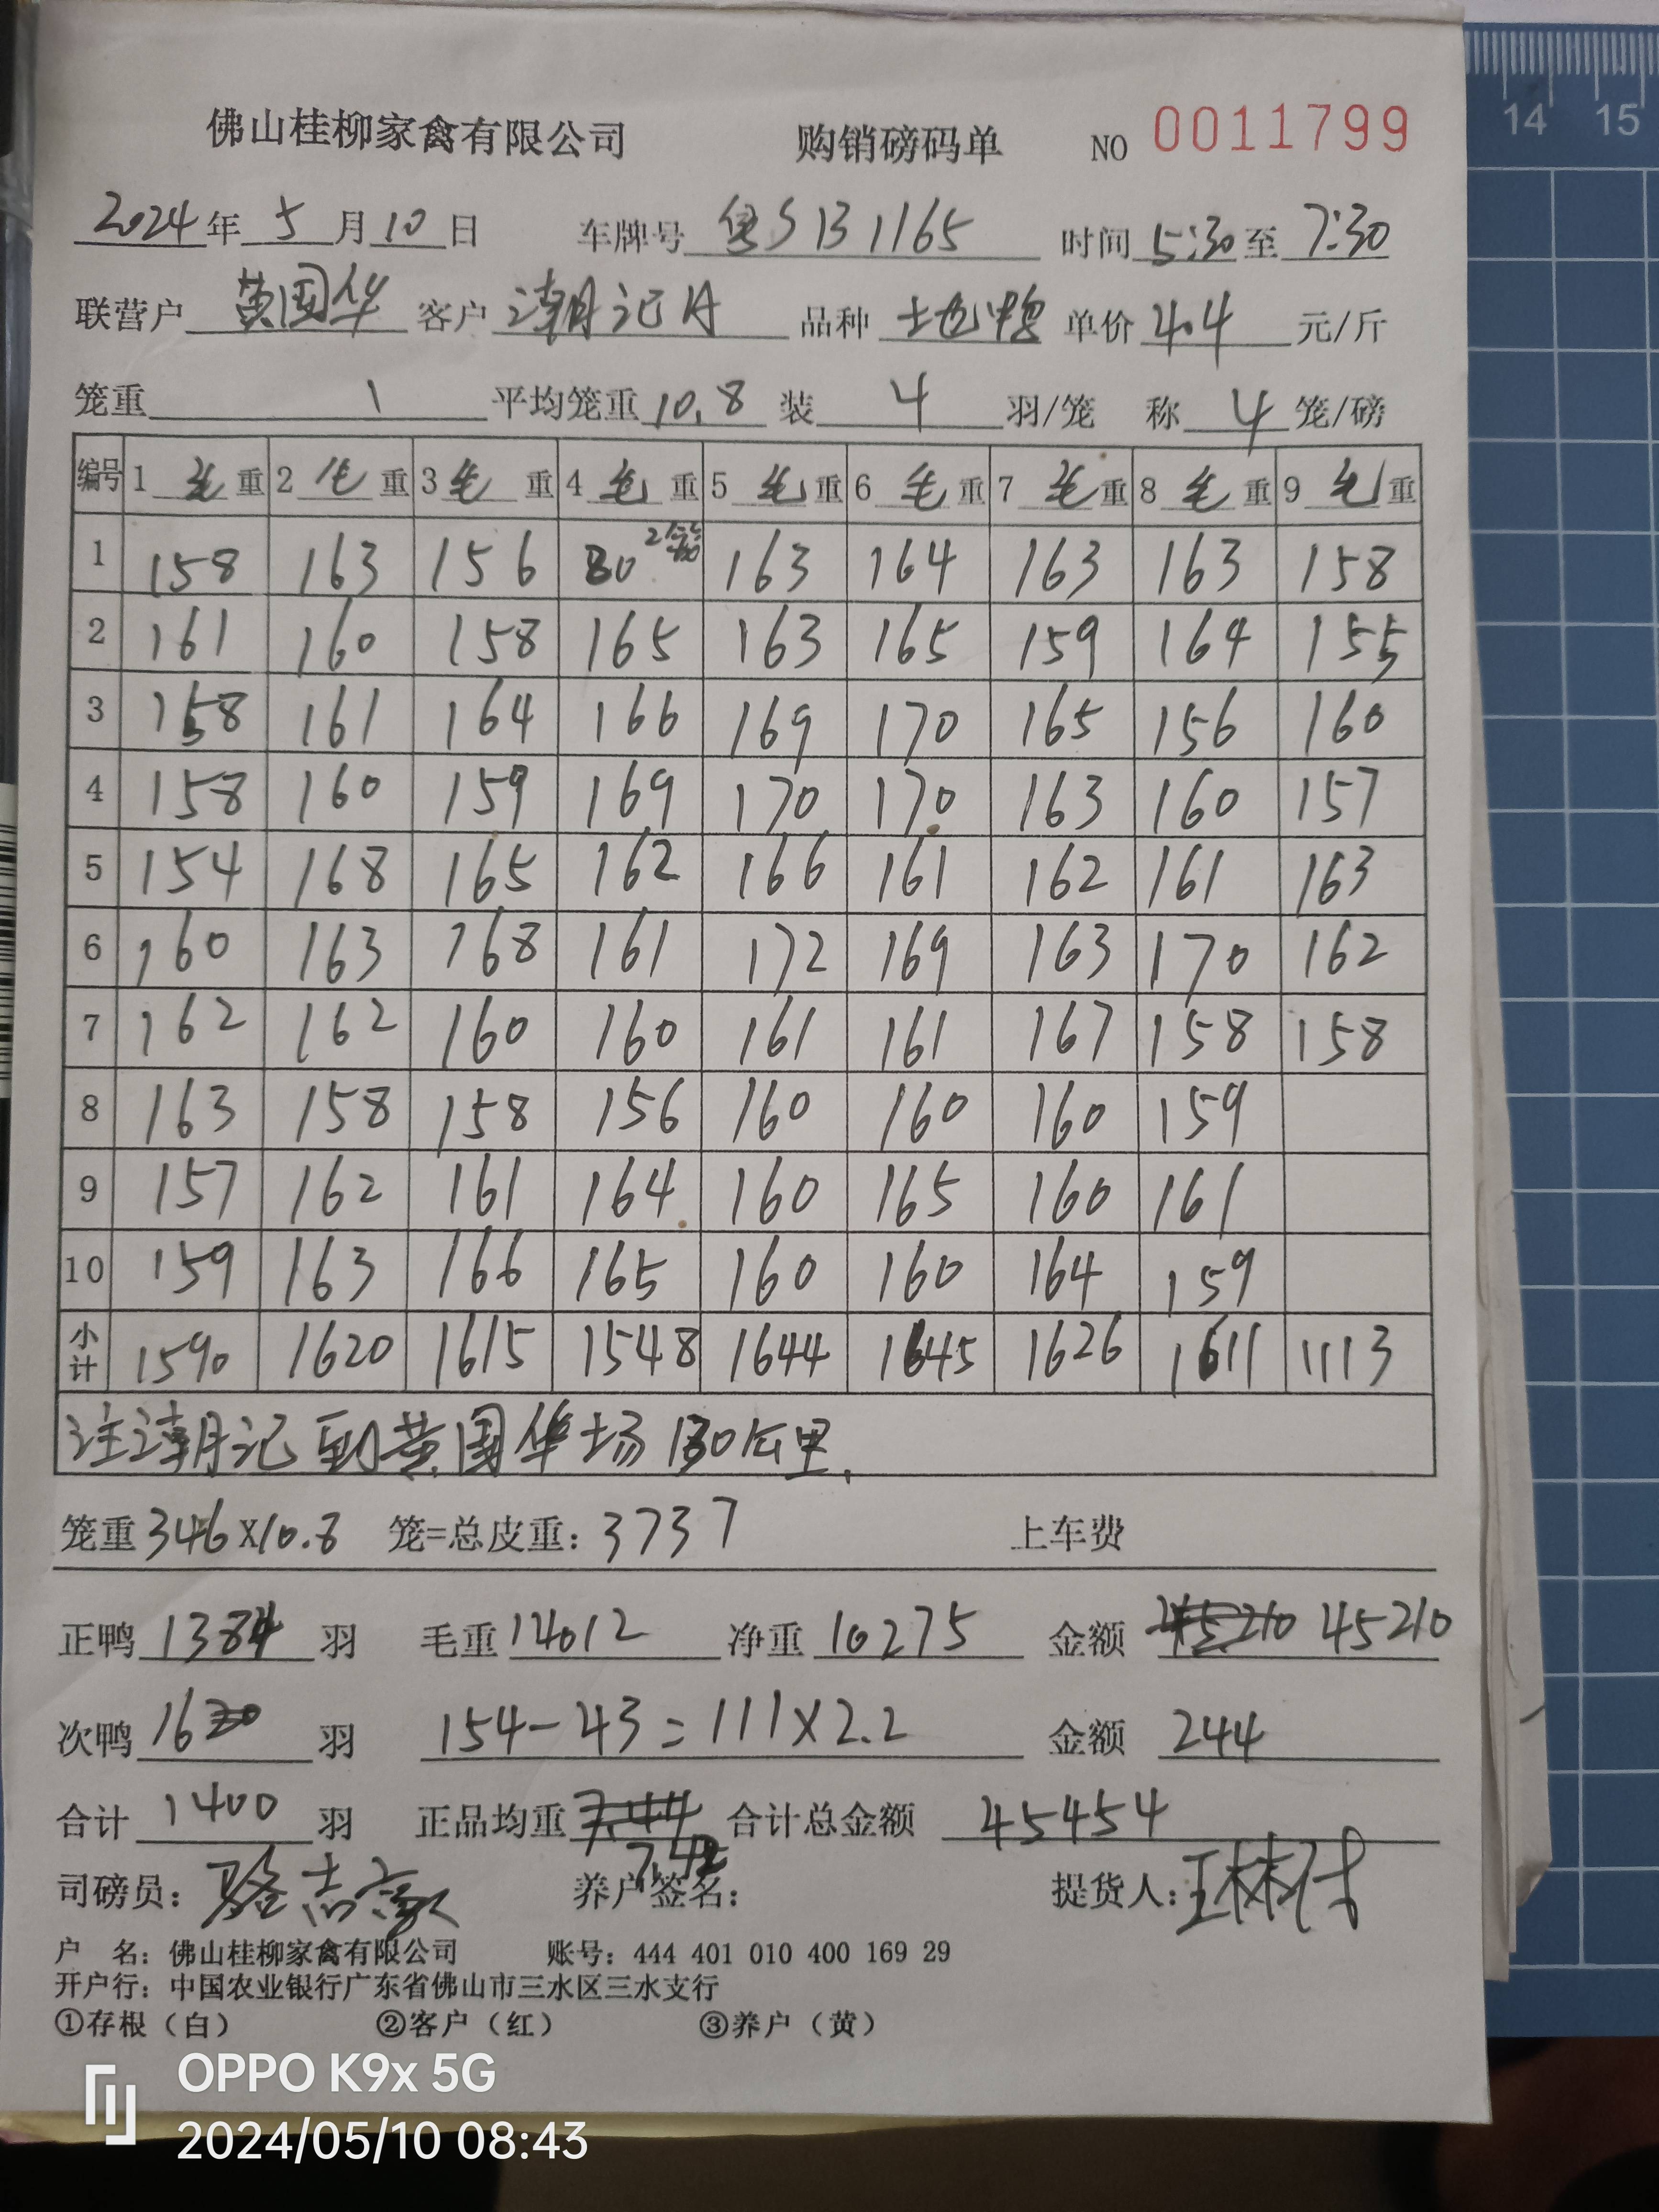 佛山桂柳家禽有限公司 购销磅码单 NO 0011799
2024年 5 月 10 日 车牌号 粤SB1165 时间 5:30 至 7:30
联营户 黄国华 客户 潮记A 品种 土也鸭 单价 4.4 元/斤
笼重 1 平均笼重 10.8 装 4 羽/笼 称 4 笼/磅
编号 1 毛重 2 毛重 3 毛重 4 毛重 5 毛重 6 毛重 7 毛重 8 毛重 9 毛重
1 158 163 156 80 2笼 163 164 163 163 158
2 161 160 158 165 163 165 159 164 155
3 158 161 164 166 169 170 165 156 160
4 158 160 159 169 170 170 163 160 157
5 154 168 165 162 166 161 162 161 163
6 160 163 168 161 172 169 163 170 162
7 162 162 160 160 161 161 167 158 158
8 163 158 158 156 160 160 160 159
9 157 162 161 164 160 165 160 161
10 159 163 166 165 160 160 164 159
小计 1590 1620 1615 1548 1644 1645 1626 1611 1113
注潮记到黄国华场130公里.
笼重 346X10.8 笼=总皮重: 3737 上车费
正鸭 1384 羽 毛重 14012 净重 10275 金额 45210 45210
次鸭 16 羽 154-43=111X2.2 金额 244
合计 1400 羽 正品均重 7.44 7.42 合计总金额 45454
司磅员: 骆志豪 养户签名: 提货人: 王林
户 名: 佛山桂柳家禽有限公司 账号: 444 401 010 400 169 29
开户行: 中国农业银行广东省佛山市三水区三水支行
①存根（白） ②客户（红） ③养户（黄）
OPPO K9x 5G
2024/05/10 08:43
14 15